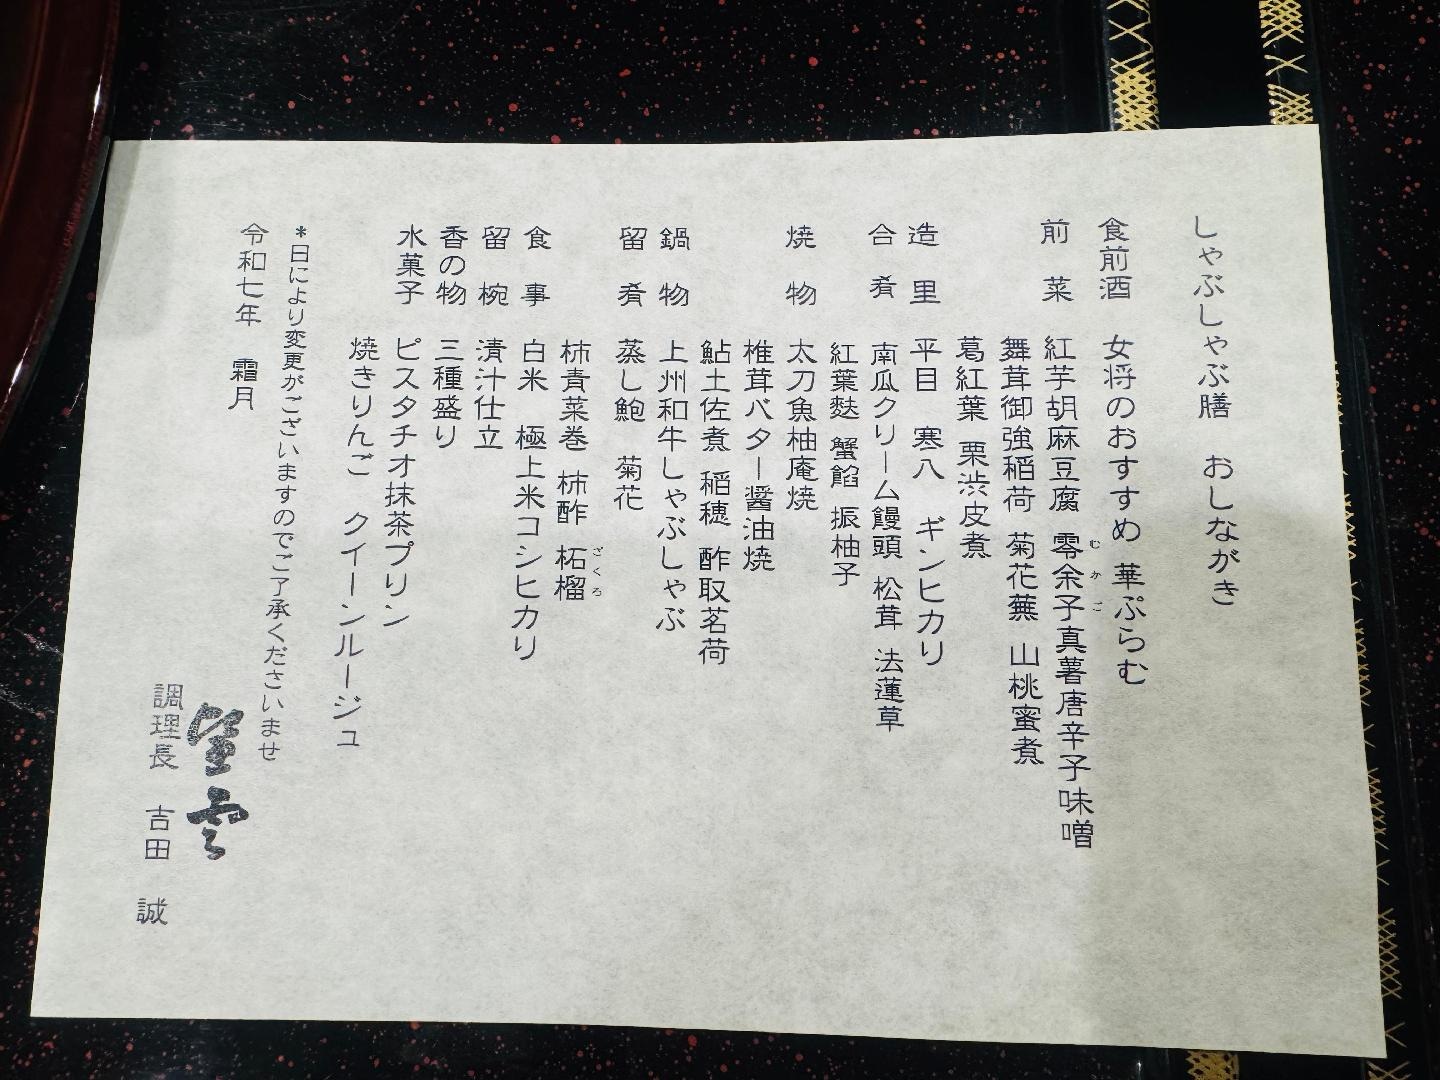 しゃぶしゃぶ膳 おしながき
食前酒 女将のおすすめ 華ぷらむ
前菜 紅芋胡麻豆腐 零余子真薯唐辛子味噌
むかご
舞茸御強稲荷 菊花蕪 山桃蜜煮
葛紅葉 栗渋皮煮
造里 平目 寒八 ギンヒカリ
合肴 南瓜クリーム饅頭 松茸 法蓮草
紅葉麩 蟹餡 振柚子
焼物 太刀魚柚庵焼
椎茸バター醤油焼
鮎土佐煮 稲穂 酢取茗荷
鍋物 上州和牛しゃぶしゃぶ
留肴 蒸し鮑 菊花
柿青菜巻 柿酢 柘榴
ざくろ
食事 白米 極上米コシヒカリ
留椀 清汁仕立
香の物 三種盛り
水菓子 ピスタチオ抹茶プリン
焼きりんご クイーンルージュ
*日により変更がございますのでご了承くださいませ
令和七年 霜月
望雲
調理長 吉田 誠